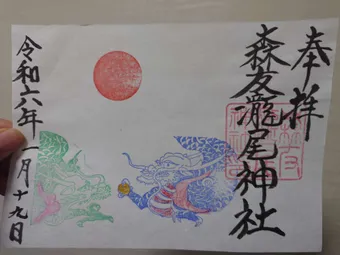 奉拝
森友瀧尾神社
令和六年一月十九日